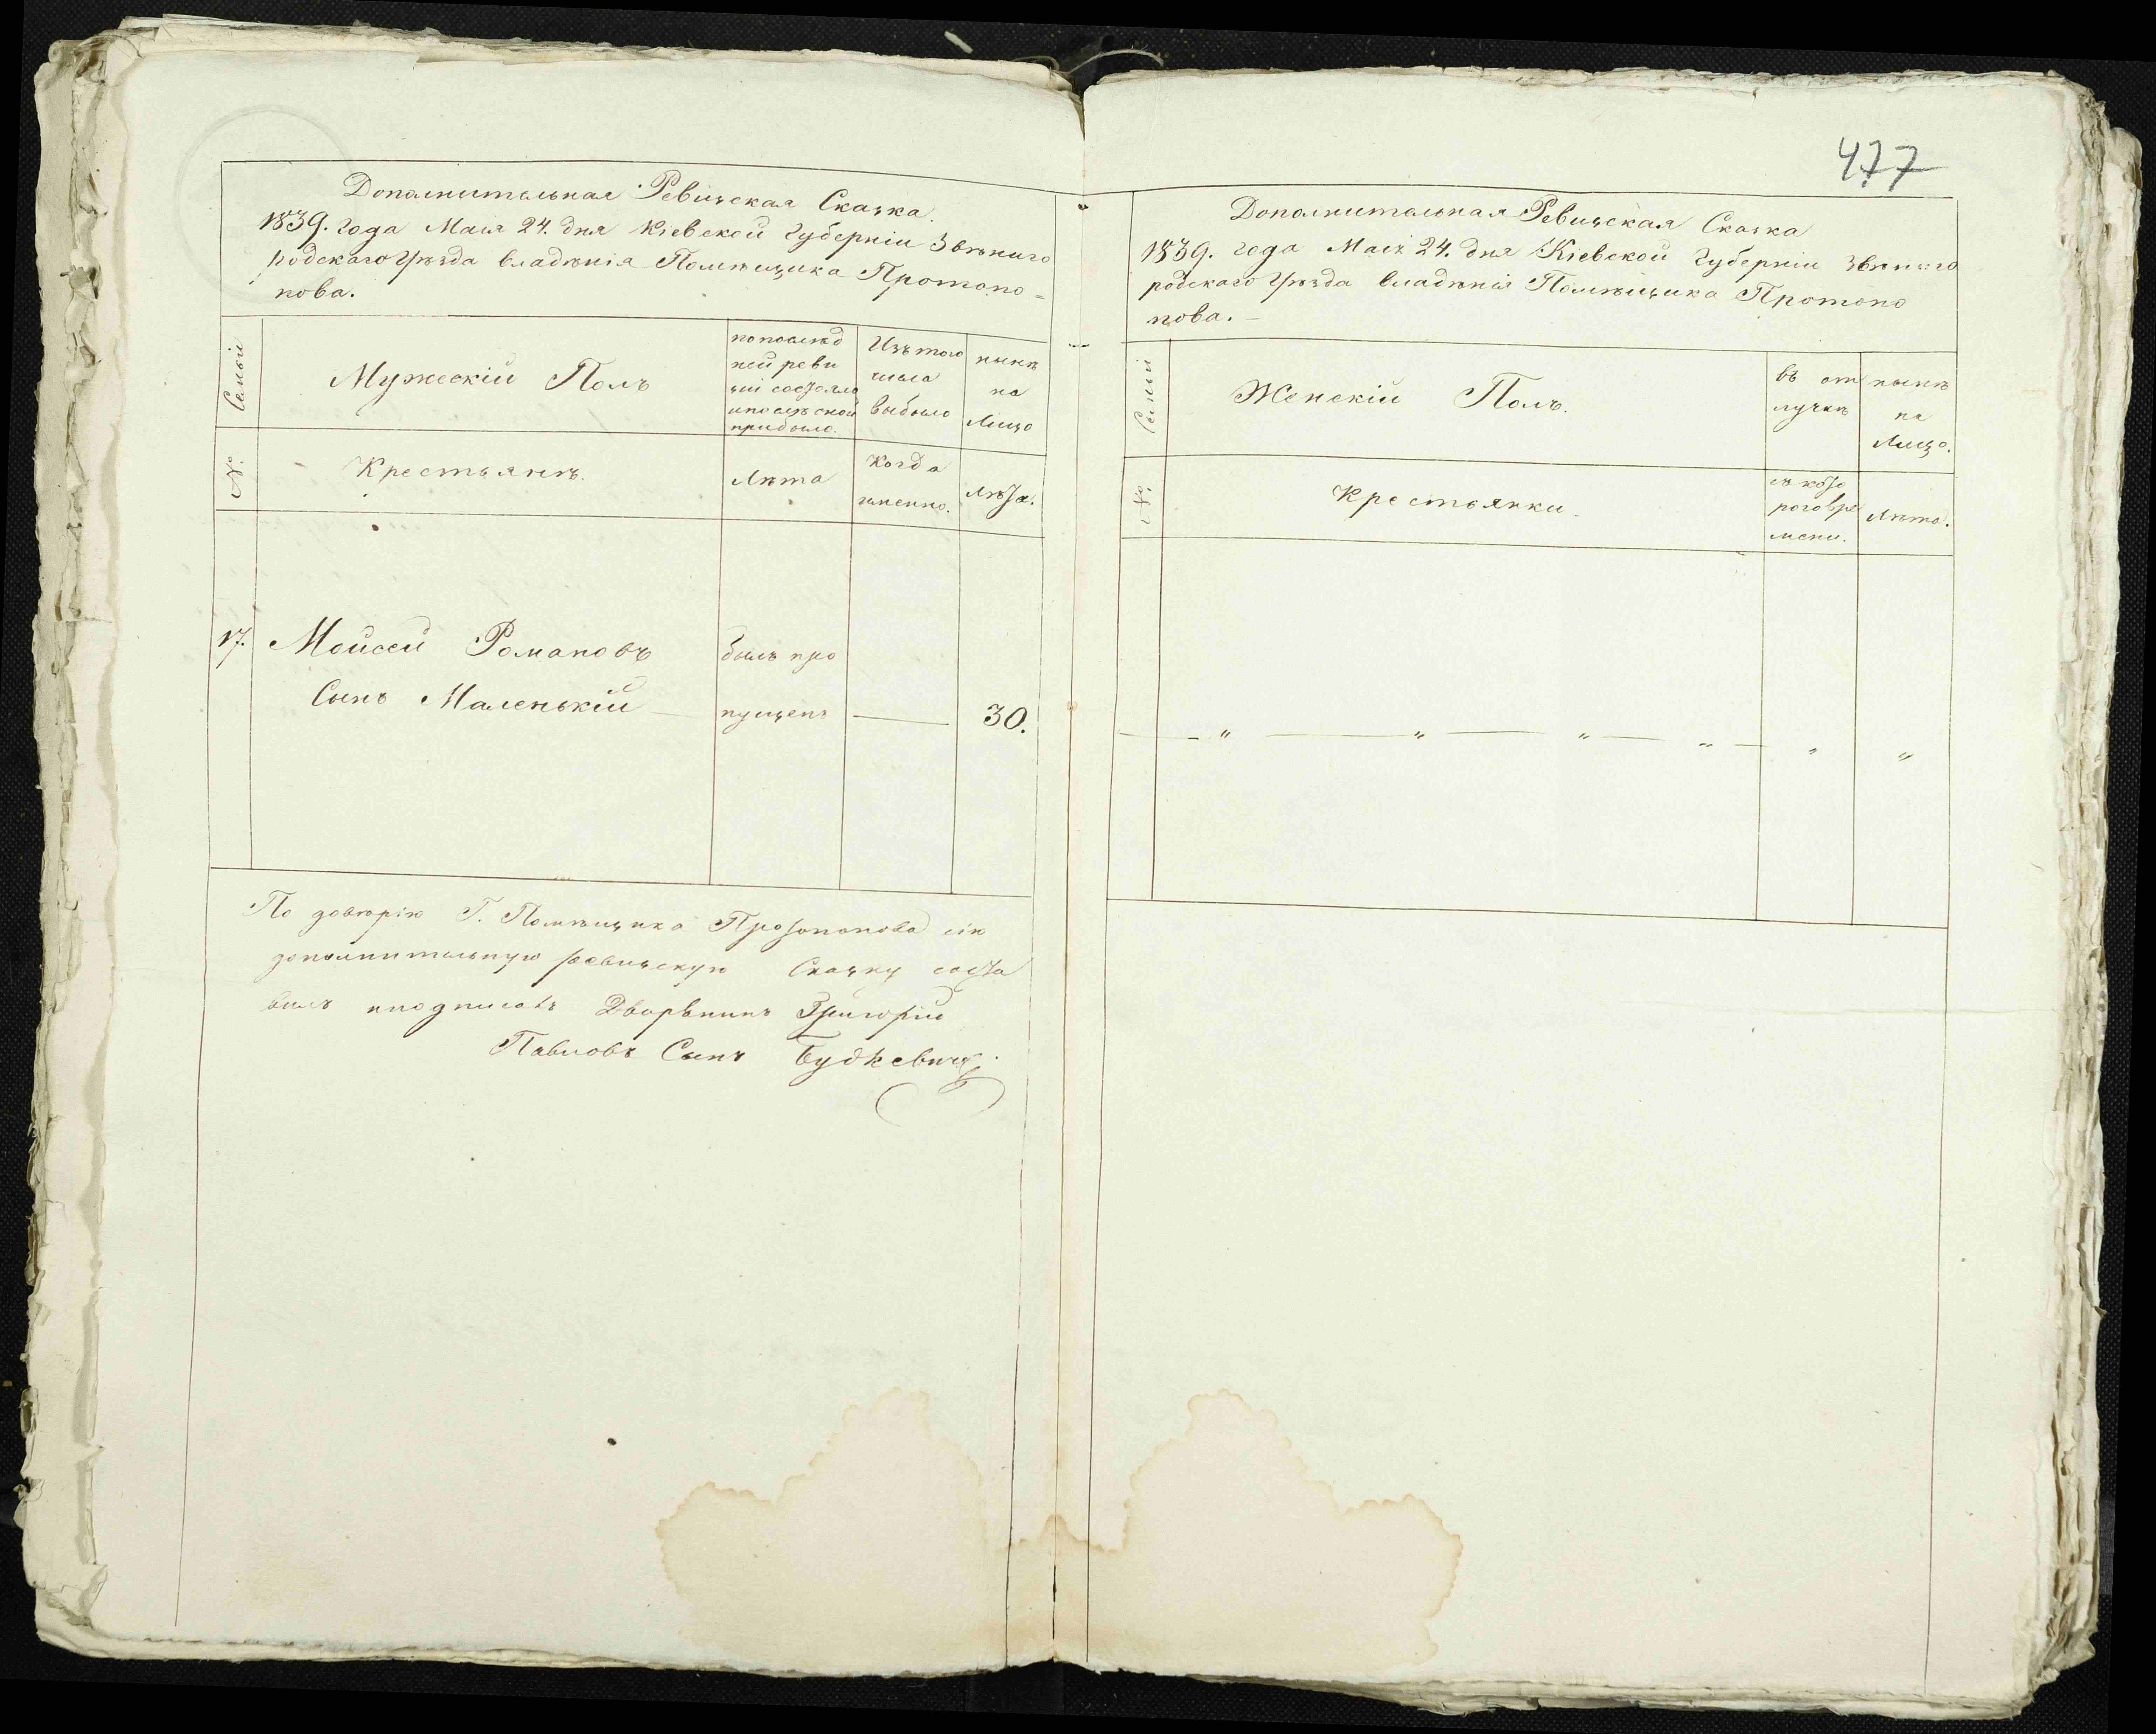 Дополнительная Ревизская Сказка.
1839. года Маія 24. дня Кіевской Губерніи Звѣниго
родскаго Уѣзда владѣнія Помѣщика Протопо=
пова.
Семьи
Мужескій Полъ
по послѣд
ней реви
зіи состояло
и после оной
прибыло.
Изъ того
числа
выбыло
нынѣ
на
Лицо
№.
Крестьянѣ.
Лѣта
Когда
именно.
Лѣта.
17.
Мойсей Романовъ
былъ про
Сынъ Маленькій
пущенъ
30.
По довѣрію Г. Помѣщика Протопопова сію
дополнительную ревизскую Сказку соста
вилъ и подписалъ Дворѣнинъ Григорій
Павловъ Сынъ Будкевичъ.
477
Дополнительная Ревизская Сказка
1839. года Маія 24. дня Кіевской Губерніи Звѣниго
родскаго Уѣзда владѣнія Помѣщика Протопо
пова. —
Семьи
Женскій Полъ.
въ от
лучкѣ
нынѣ
на
Лицо.
№.
Крестьянки.
съ кото
раго вре
мени.
Лѣта.
— „ — „ — „ — „ — „ „